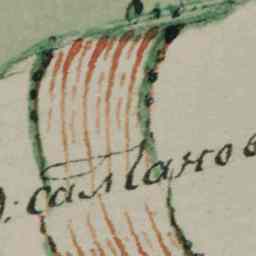 д: салтанов